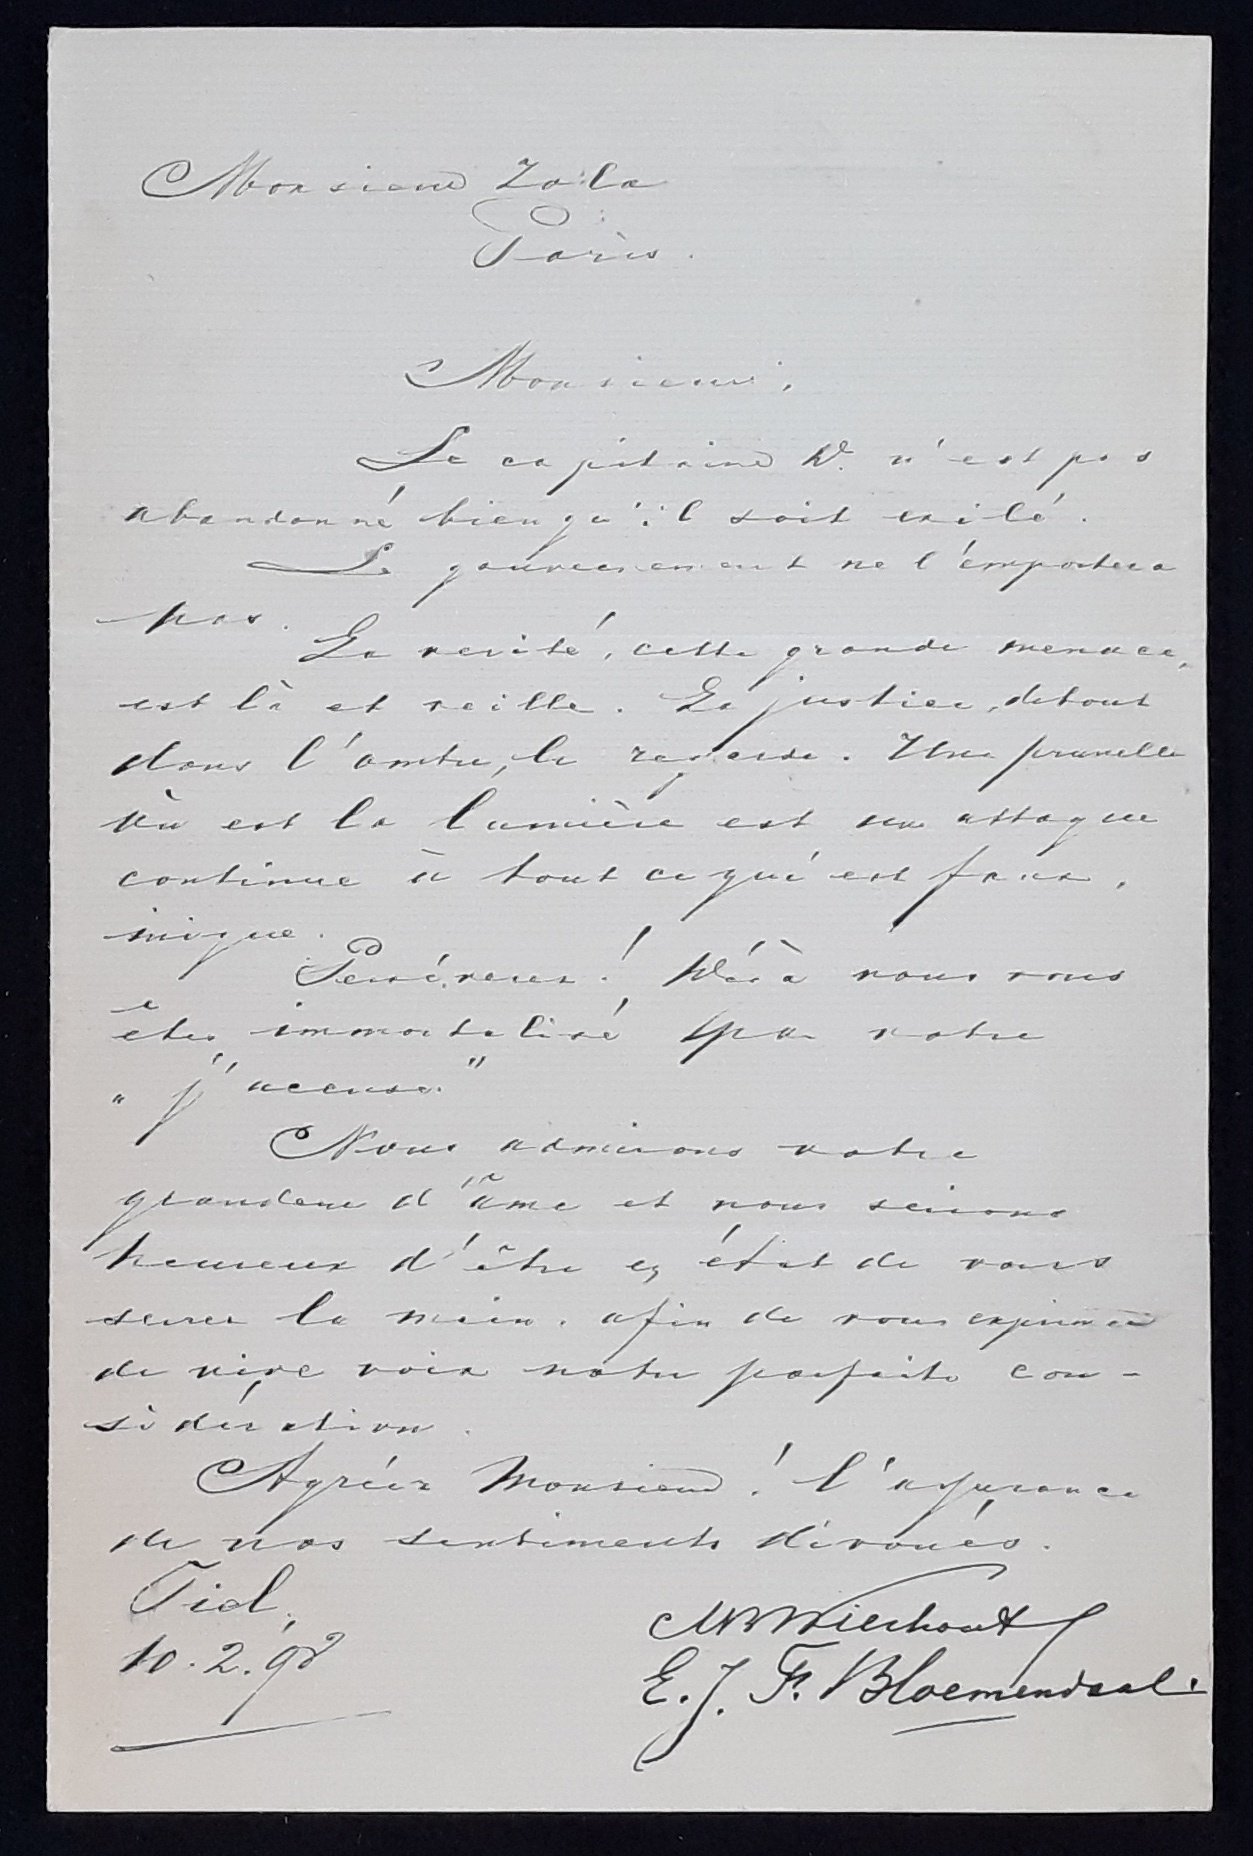 Monsieur Zola
Paris.
Monsieur,
Le capitaine D. n'est pas
abandonné bienqu'il soit exilé.
Le gouvernement ne l'emportera
pas.
La verité, cette grande menace,
est là et veille. La justice, debout
dans l'ombre, le regarde. Une prunelle
où est la lumière est une attaque
continue à tout ce qui est faux,
inique.
Persévérez! Déjà vous vous
êtes immortalisé par votre
„j'accuse."
Nous admirons votre
grandeur d'âme et nous serions
heureux d'être en état de vous
serrer la main, afin de vous exprimer
de vive voix notre parfaite con-
sidération.
Agréez Monsieur! l'assurance
de nos sentiments dévoués.
Tiel,
10.2.98
Wierhout
E. J. F. Bloemendaal.